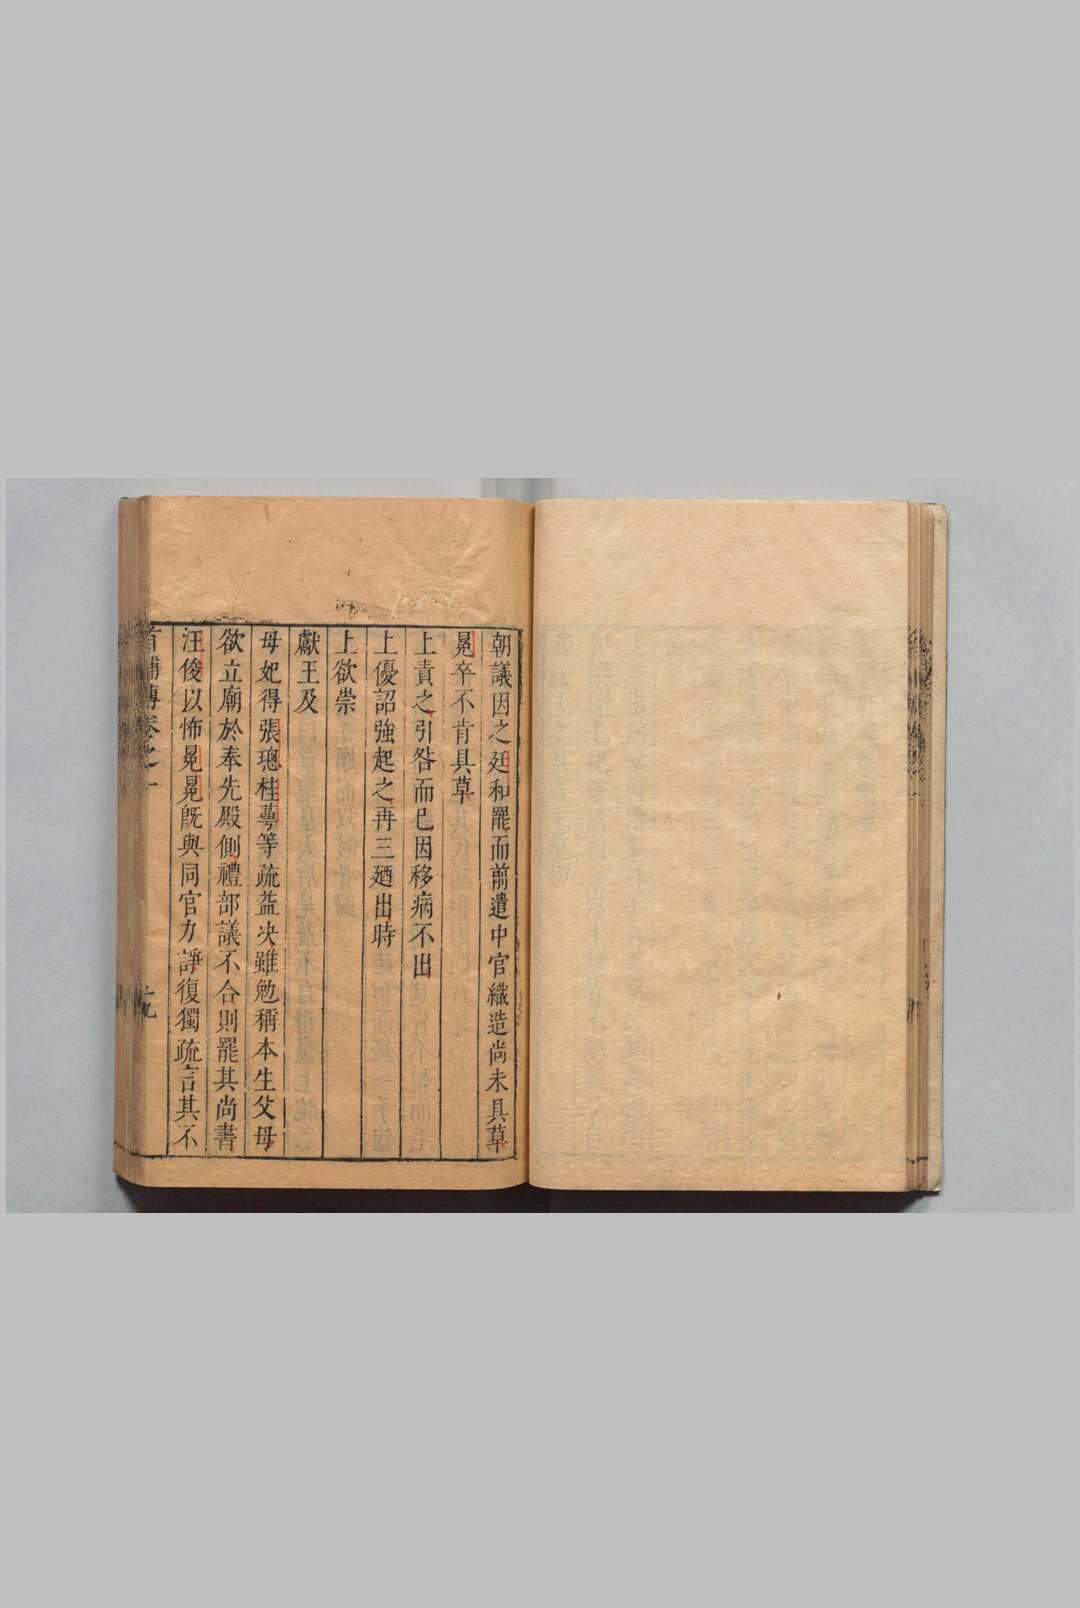 朝議因之廷和罷而前遣中官織造尚未具草
冕卒不肯具草
上責之引咎而已因移病不出
上優詔強起之再三廼出時
上欲崇
獻王及
母妃得張璁桂萼等疏益决雖勉稱本生父母
欲立廟於奉先殿側禮部議不合則罷其尚書
汪俊以怖冕冕旣與同官力諍復獨疏言其不
首輔傳卷之一